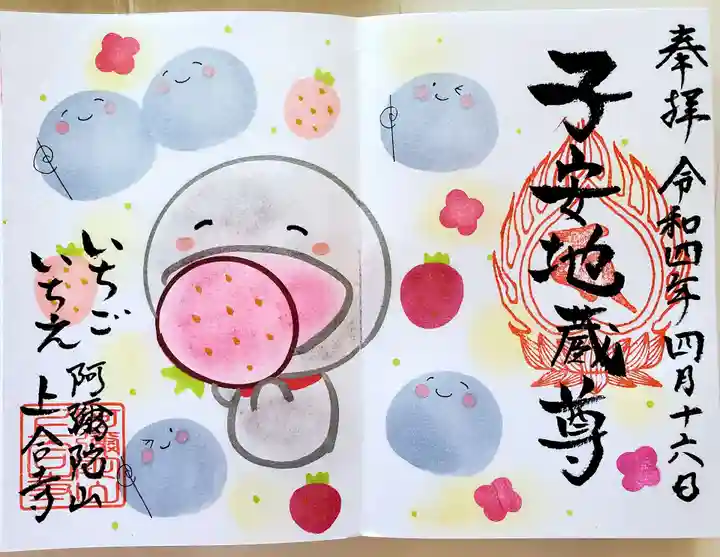 奉拝 令和四年 四月十六日
子安地蔵尊
いちご
いちえ
阿彌陀山
上合寺